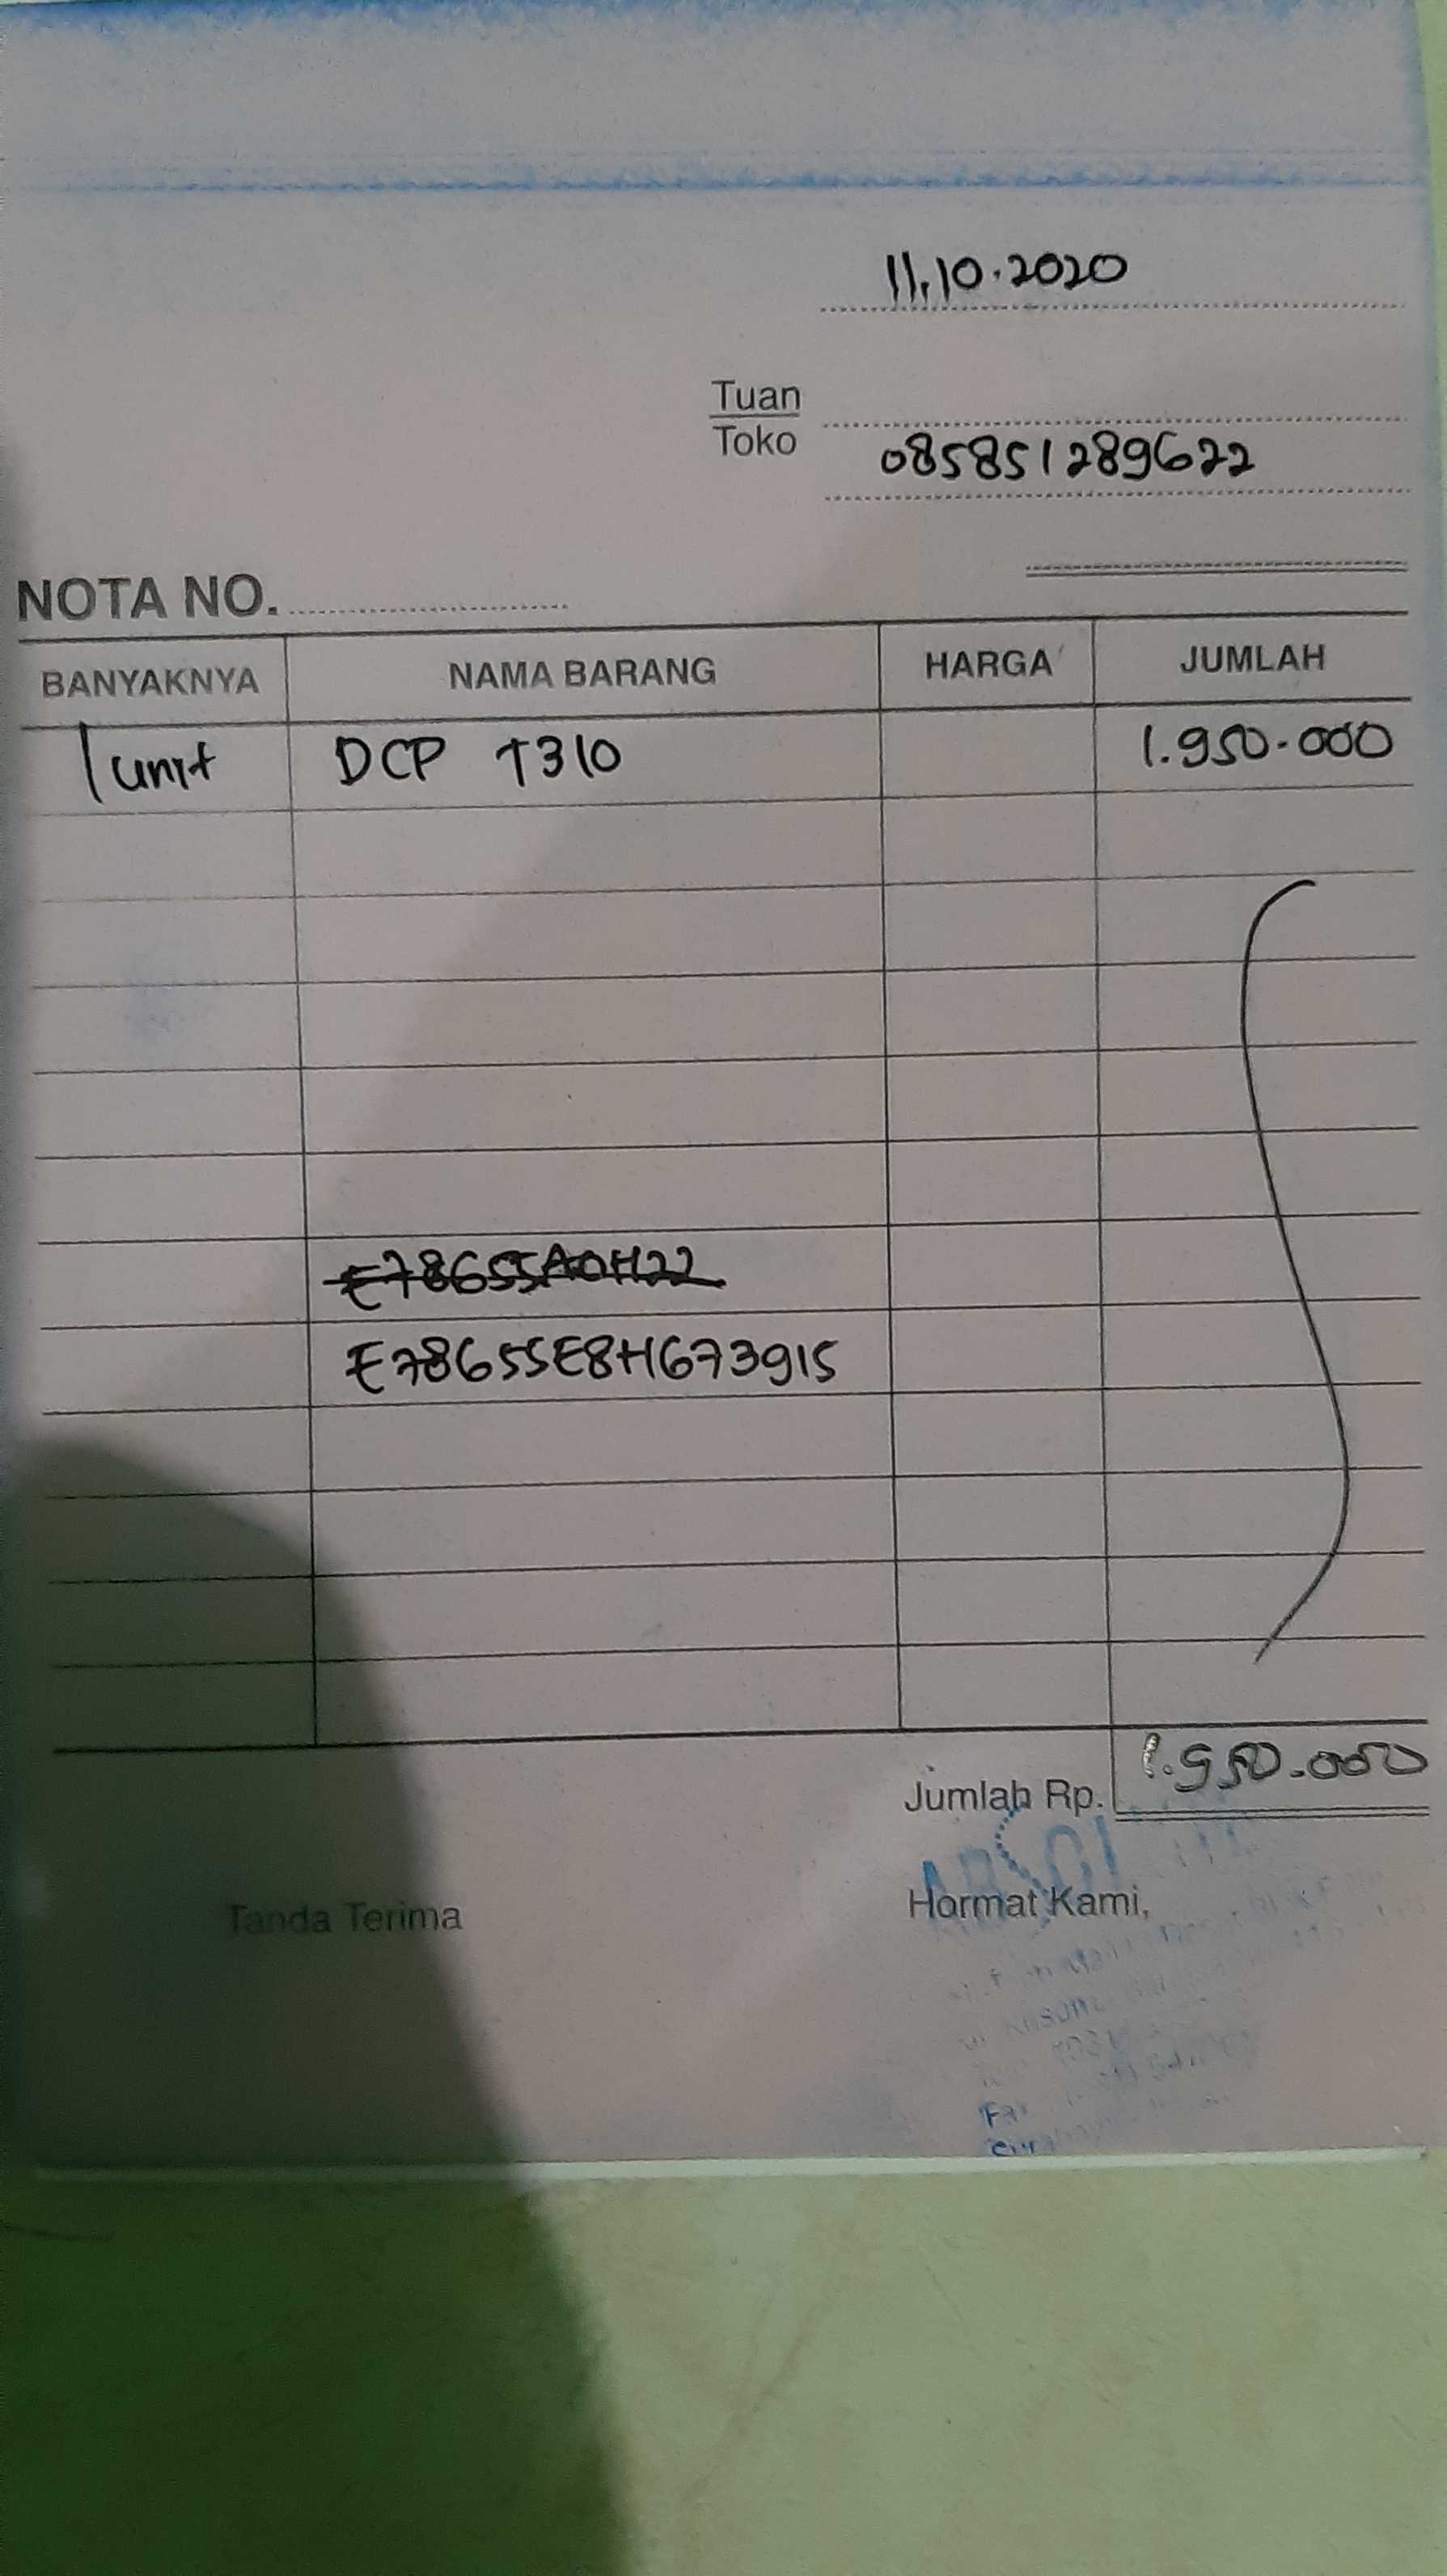 11.10.2020
Tuan
Toko
085851289622
NOTA NO.
BANYAKNYA NAMA BARANG HARGA JUMLAH
1 unit DCP T310 1.950.000
E78655A0H22
E78655E8H673915
Jumlah Rp. 1.950.000
Tanda Terima Hormat Kami,